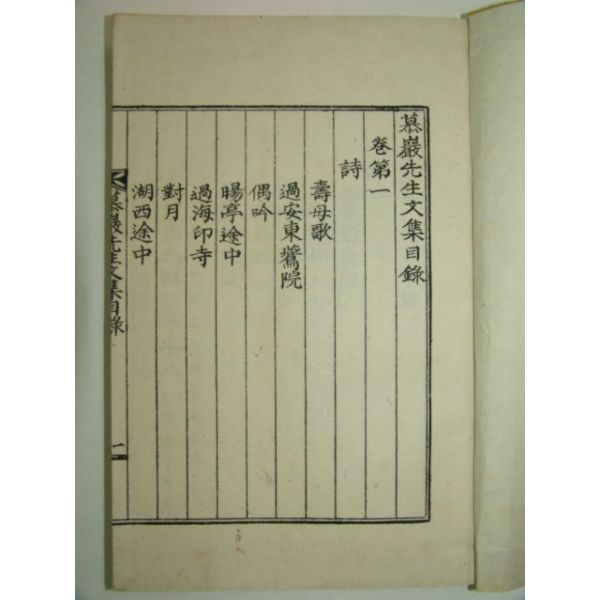 慕巖先生文集目錄
卷第一
詩
壽母歌
過安東鶯院
偶吟
暘亭途中
過海印寺
對月
湖西途中
慕巖先生文集目錄
一